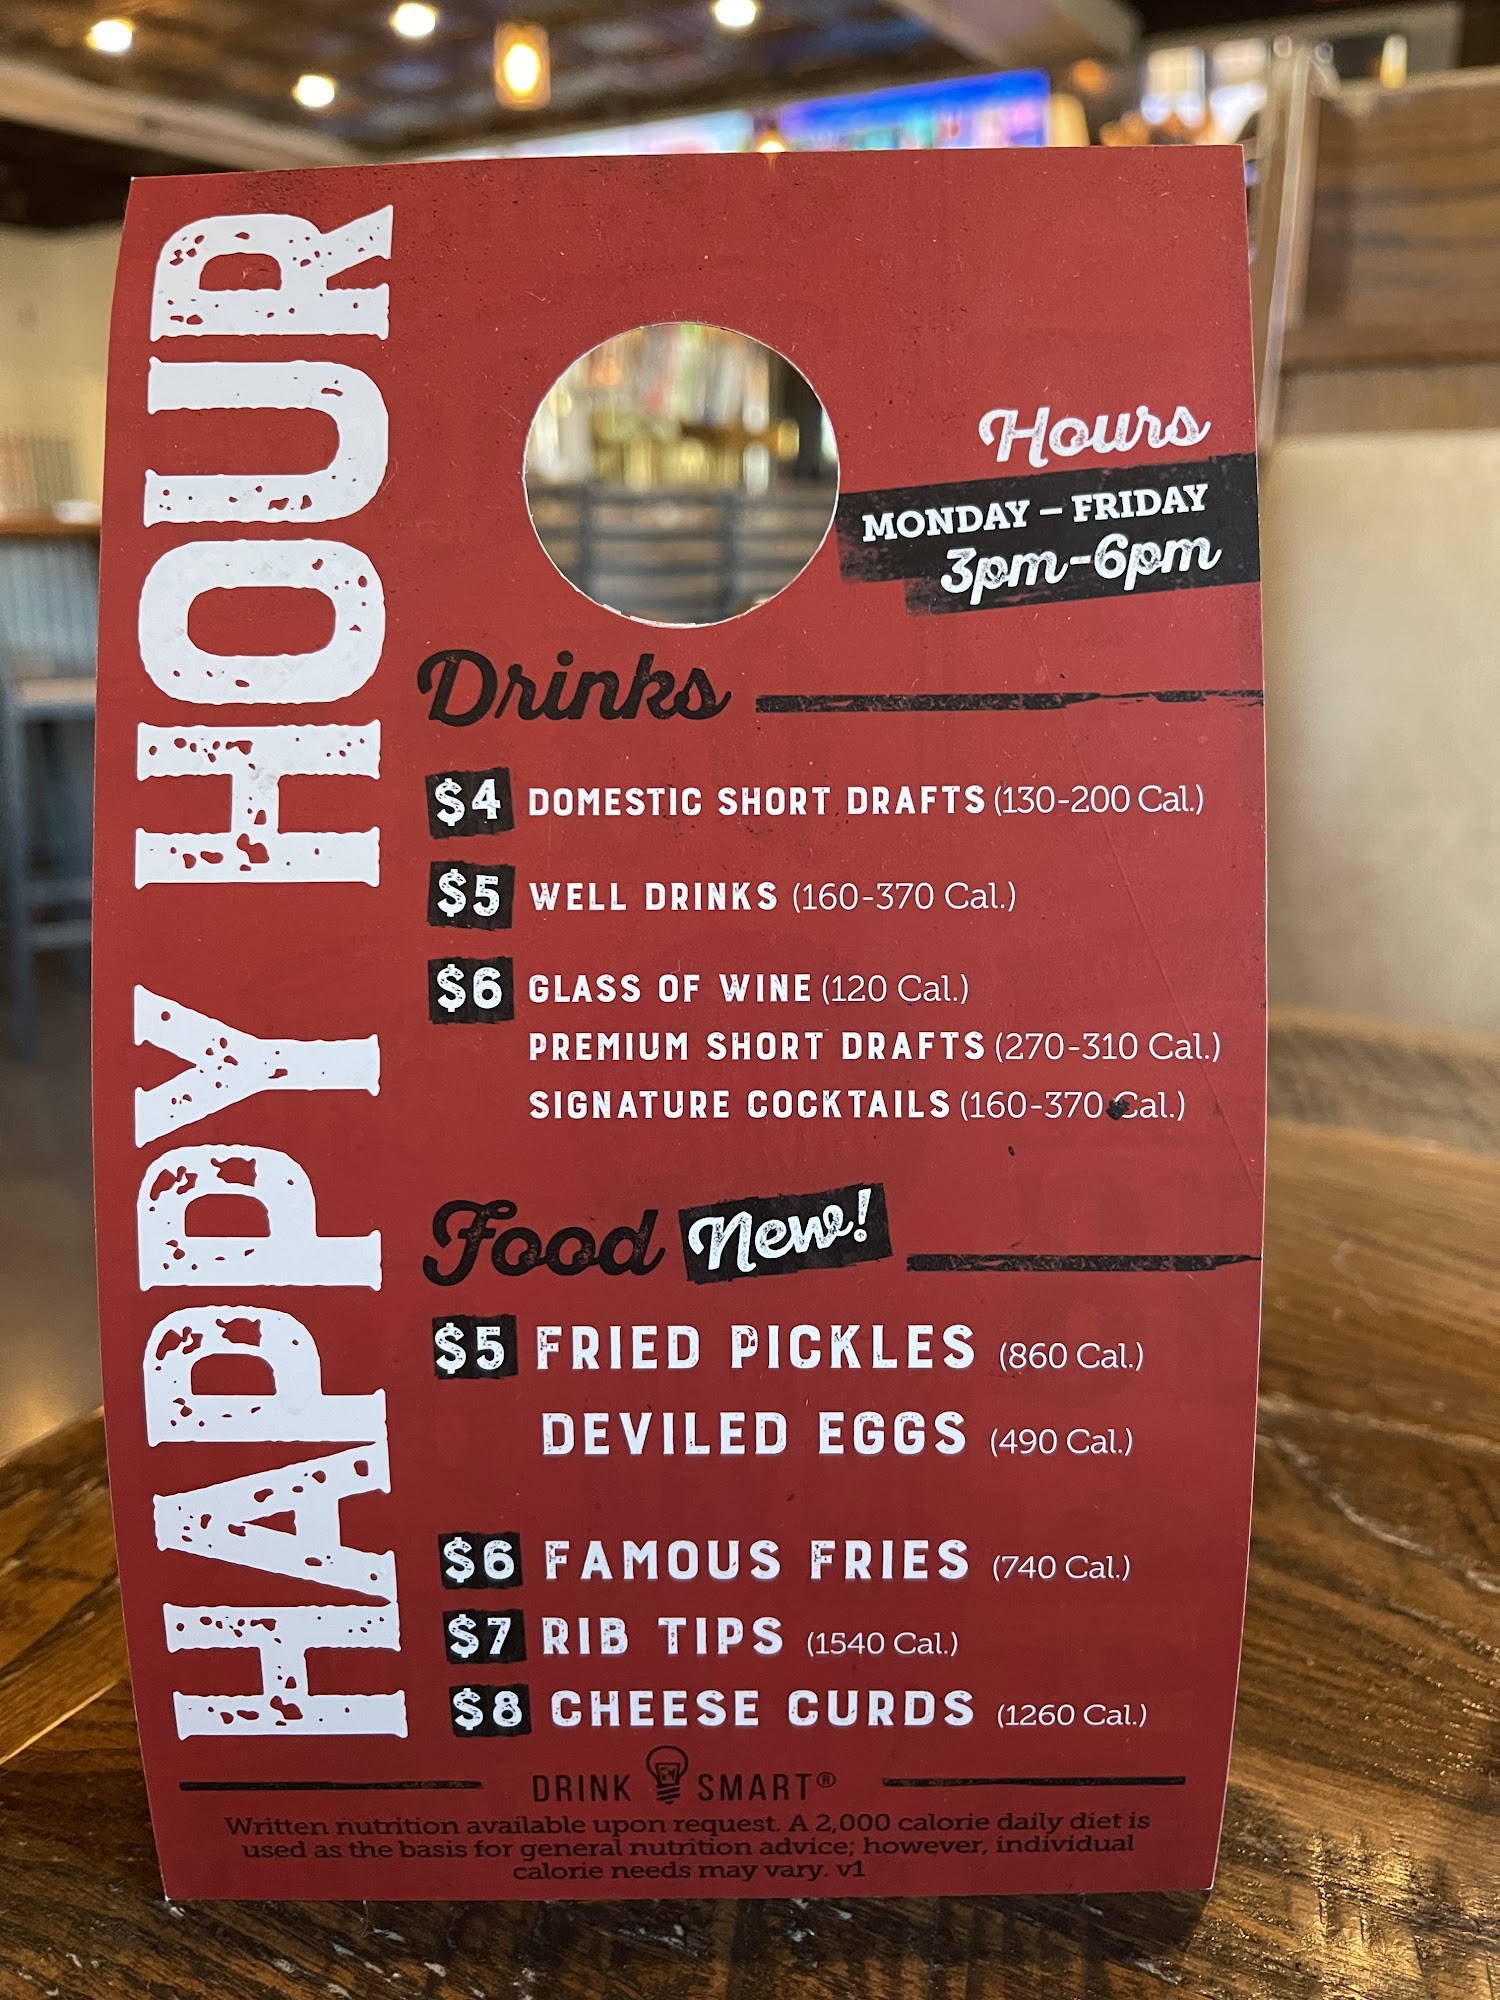 HAPPY HOUR
Hours
MONDAY – FRIDAY
3pm-6pm
Drinks
$4 DOMESTIC SHORT DRAFTS (130-200 Cal.)
$5 WELL DRINKS (160-370 Cal.)
$6 GLASS OF WINE (120 Cal.)
PREMIUM SHORT DRAFTS (270-310 Cal.)
SIGNATURE COCKTAILS (160-370 Cal.)
Food New!
$5 FRIED PICKLES (860 Cal.)
DEVILED EGGS (490 Cal.)
$6 FAMOUS FRIES (740 Cal.)
$7 RIB TIPS (1540 Cal.)
$8 CHEESE CURDS (1260 Cal.)
DRINK SMART®
Written nutrition available upon request. A 2,000 calorie daily diet is
used as the basis for general nutrition advice; however, individual
calorie needs may vary. v1